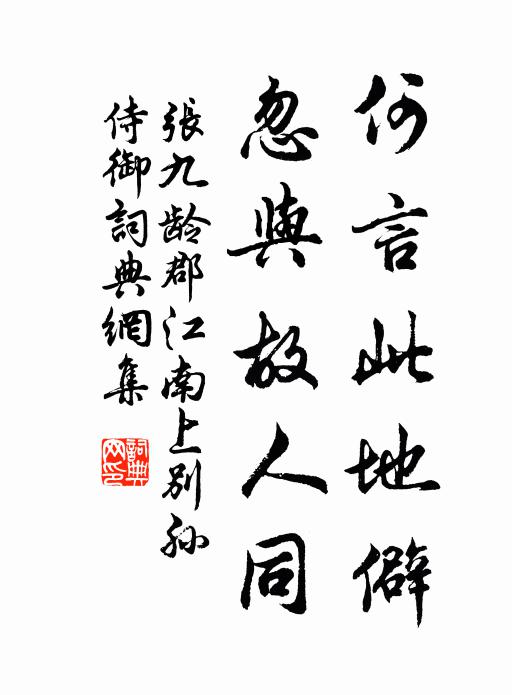 何言此地僻
忽與故人同
張九龄郡江南上別孙
侍御詞典網集
詞典网印